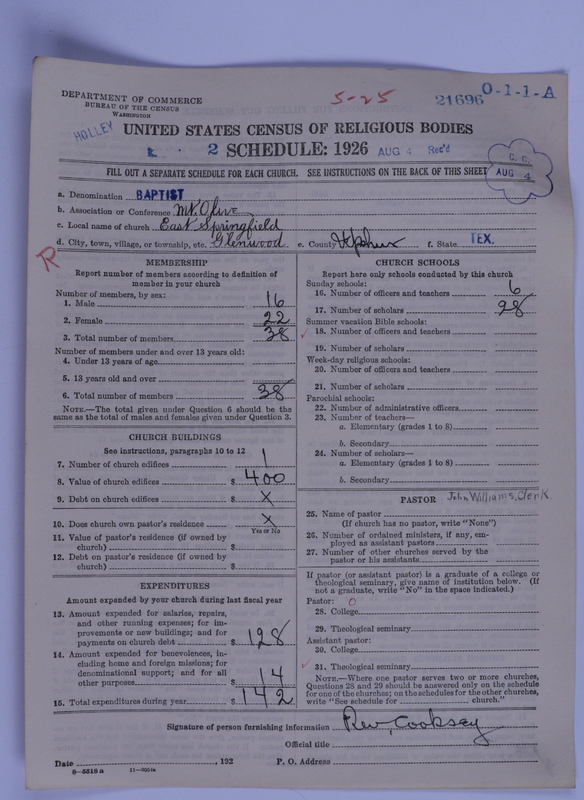 DEPARTMENT OF COMMERCE
BUREAU OF THE CENSUS
WASHINGTON
5-25
21696
O-1-1-A
HOLLEY
UNITED STATES CENSUS OF RELIGIOUS BODIES
2 SCHEDULE: 1926 AUG 4 Rec'd
C. C.
AUG 4
FILL OUT A SEPARATE SCHEDULE FOR EACH CHURCH. SEE INSTRUCTIONS ON THE BACK OF THIS SHEET
a. Denomination BAPTIST
b. Association or Conference Mt. Olive
c. Local name of church East Springfield
d. City, town, village, or township, etc. Glenwood e. County Upshur f. State TEX.
R
MEMBERSHIP
Report number of members according to definition of
member in your church
Number of members, by sex:
1. Male 16
2. Female 22
3. Total number of members 38
Number of members under and over 13 years old:
4. Under 13 years of age
5. 13 years old and over
6. Total number of members 38
NOTE.—The total given under Question 6 should be the
same as the total of males and females given under Question 3.
CHURCH BUILDINGS
See instructions, paragraphs 10 to 12
7. Number of church edifices 1
8. Value of church edifices $ 400
9. Debt on church edifices $ X
10. Does church own pastor's residence X
Yes or No
11. Value of pastor's residence (if owned by
church) $
12. Debt on pastor's residence (if owned by
church) $
EXPENDITURES
Amount expended by your church during last fiscal year
13. Amount expended for salaries, repairs,
and other running expenses; for im-
provements or new buildings; and for
payments on church debt $ 128
14. Amount expended for benevolences, in-
cluding home and foreign missions; for
denominational support; and for all
other purposes $ 14
15. Total expenditures during year $ 142
CHURCH SCHOOLS
Report here only schools conducted by this church
Sunday schools:
16. Number of officers and teachers 6
17. Number of scholars 98
Summer vacation Bible schools:
18. Number of officers and teachers
19. Number of scholars
Week-day religious schools:
20. Number of officers and teachers
21. Number of scholars
Parochial schools:
22. Number of administrative officers
23. Number of teachers—
a. Elementary (grades 1 to 8)
b. Secondary
24. Number of scholars—
a. Elementary (grades 1 to 8)
b. Secondary
PASTOR John Williams, Clerk
25. Name of pastor
(If church has no pastor, write "None")
26. Number of ordained ministers, if any, em-
ployed as assistant pastors
27. Number of other churches served by the
pastor or his assistants
If pastor (or assistant pastor) is a graduate of a college or
theological seminary, give name of institution below. (If
not a graduate, write "No" in the space indicated.)
Pastor: O
28. College
29. Theological seminary
Assistant pastor:
30. College
31. Theological seminary
NOTE.—Where one pastor serves two or more churches,
Questions 28 and 29 should be answered only on the schedule
for one of the churches; on the schedules for the other churches,
write "See schedule for church."
Signature of person furnishing information Rev, Cooksey
Official title
Date , 192 P. O. Address